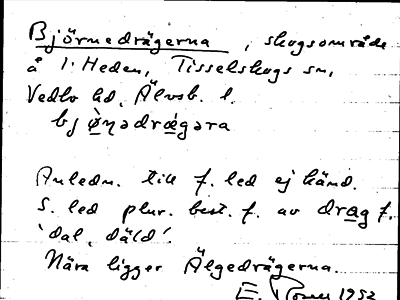 Björnedrägerna, skogsområde
å l. Heden, Tisselskogs sn,
Vedbo hd, Älvsb. l.
bjø̀nədrǽgəra
Anledn. till f. led ej känd.
S. led plur. best. f. av drag f.
'dal, däld'.
Nära ligger Älgedrägerna.
E. 1952